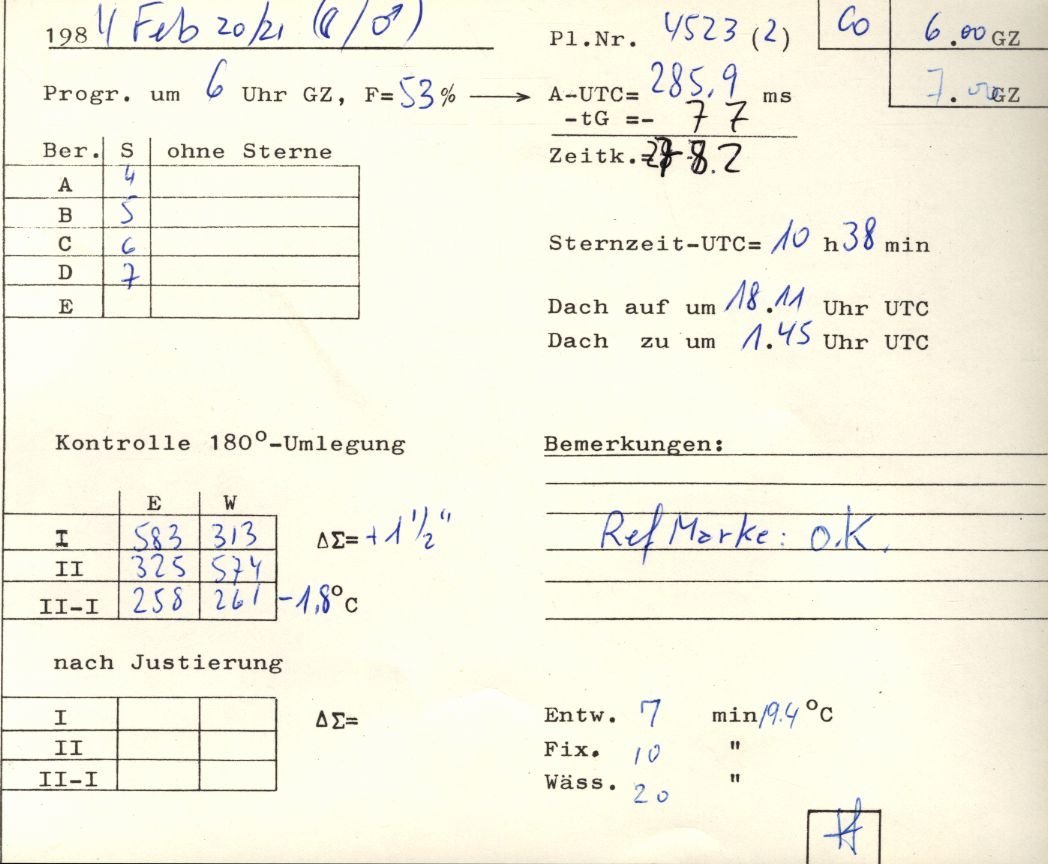 1984 Feb 20/21 (☾/♂)
Pl.Nr. 4523 (2)
Co 6.00 GZ
7.00 GZ
Progr. um 6 Uhr GZ, F=53% → A-UTC= 285,9 ms
-tG =- 77
Zeitk.= 8.2
Ber. S ohne Sterne
A 4
B 5
C 6
D 7
E
Sternzeit-UTC= 10 h 38 min
Dach auf um 18.11 Uhr UTC
Dach zu um 1.45 Uhr UTC
Kontrolle 180°-Umlegung
E W
I 583 313 ΔΣ= +1 1/2"
II 325 574
II-I 258 261 -1,8°C
Bemerkungen:
Ref Marke: o.K.
nach Justierung
I ΔΣ=
II
II-I
Entw. 7 min 19.4 °C
Fix. 10 "
Wäss. 20 "